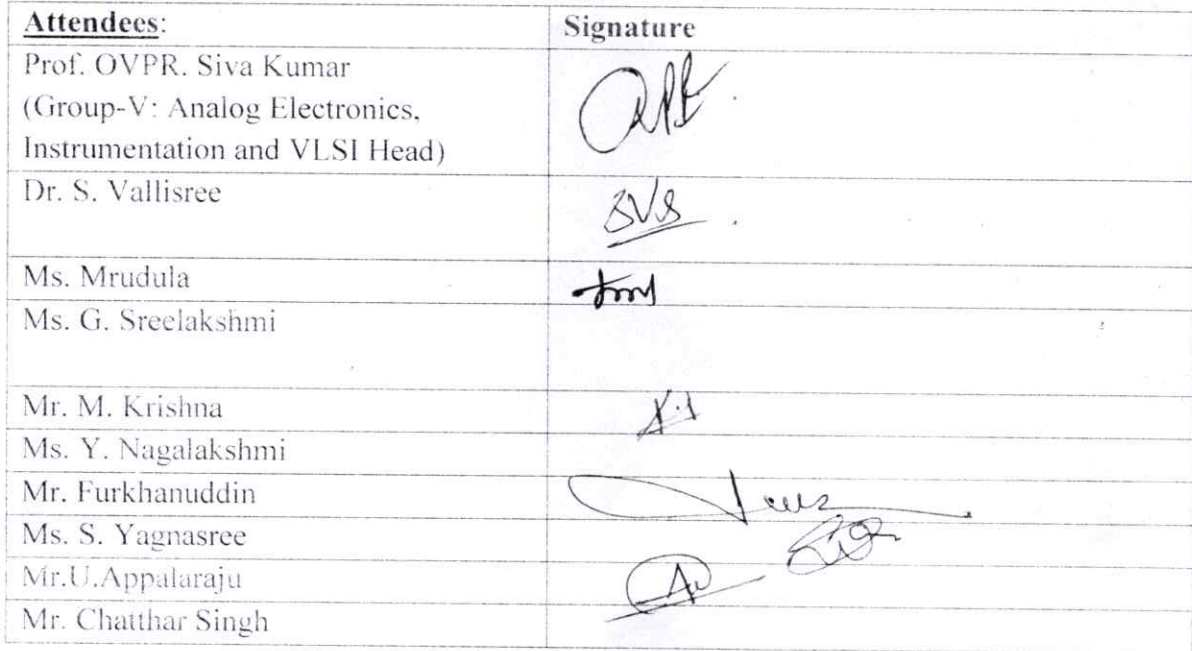 Attendees: Signature
Prof. OVPR. Siva Kumar
(Group-V: Analog Electronics,
Instrumentation and VLSI Head)
Dr. S. Vallisree
SVS
Ms. Mrudula
Ms. G. Sreelakshmi
Mr. M. Krishna
Ms. Y. Nagalakshmi
Mr. Furkhanuddin
Ms. S. Yagnasree
Mr.U.Appalaraju
Mr. Chatthar Singh